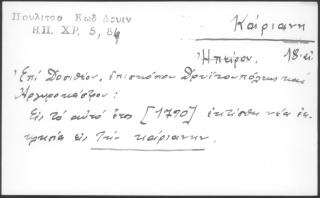 Πουλίτσα Κωδ Δρυϊν
ΗΠ. ΧΡ. 5, 84
Καίριανη
Ἠπείρου. 18 αἰ.
Ἐπί Δοσιθέου, ἐπισκόπου Δρυϊνουπόλεως καί
Ἀργυροκάστρου:
Εἰς τό αὐτό ἔτος [1790] ἐκτίσθη νέα ἐκ-
κλησία εἰς Τήν καίριανην.